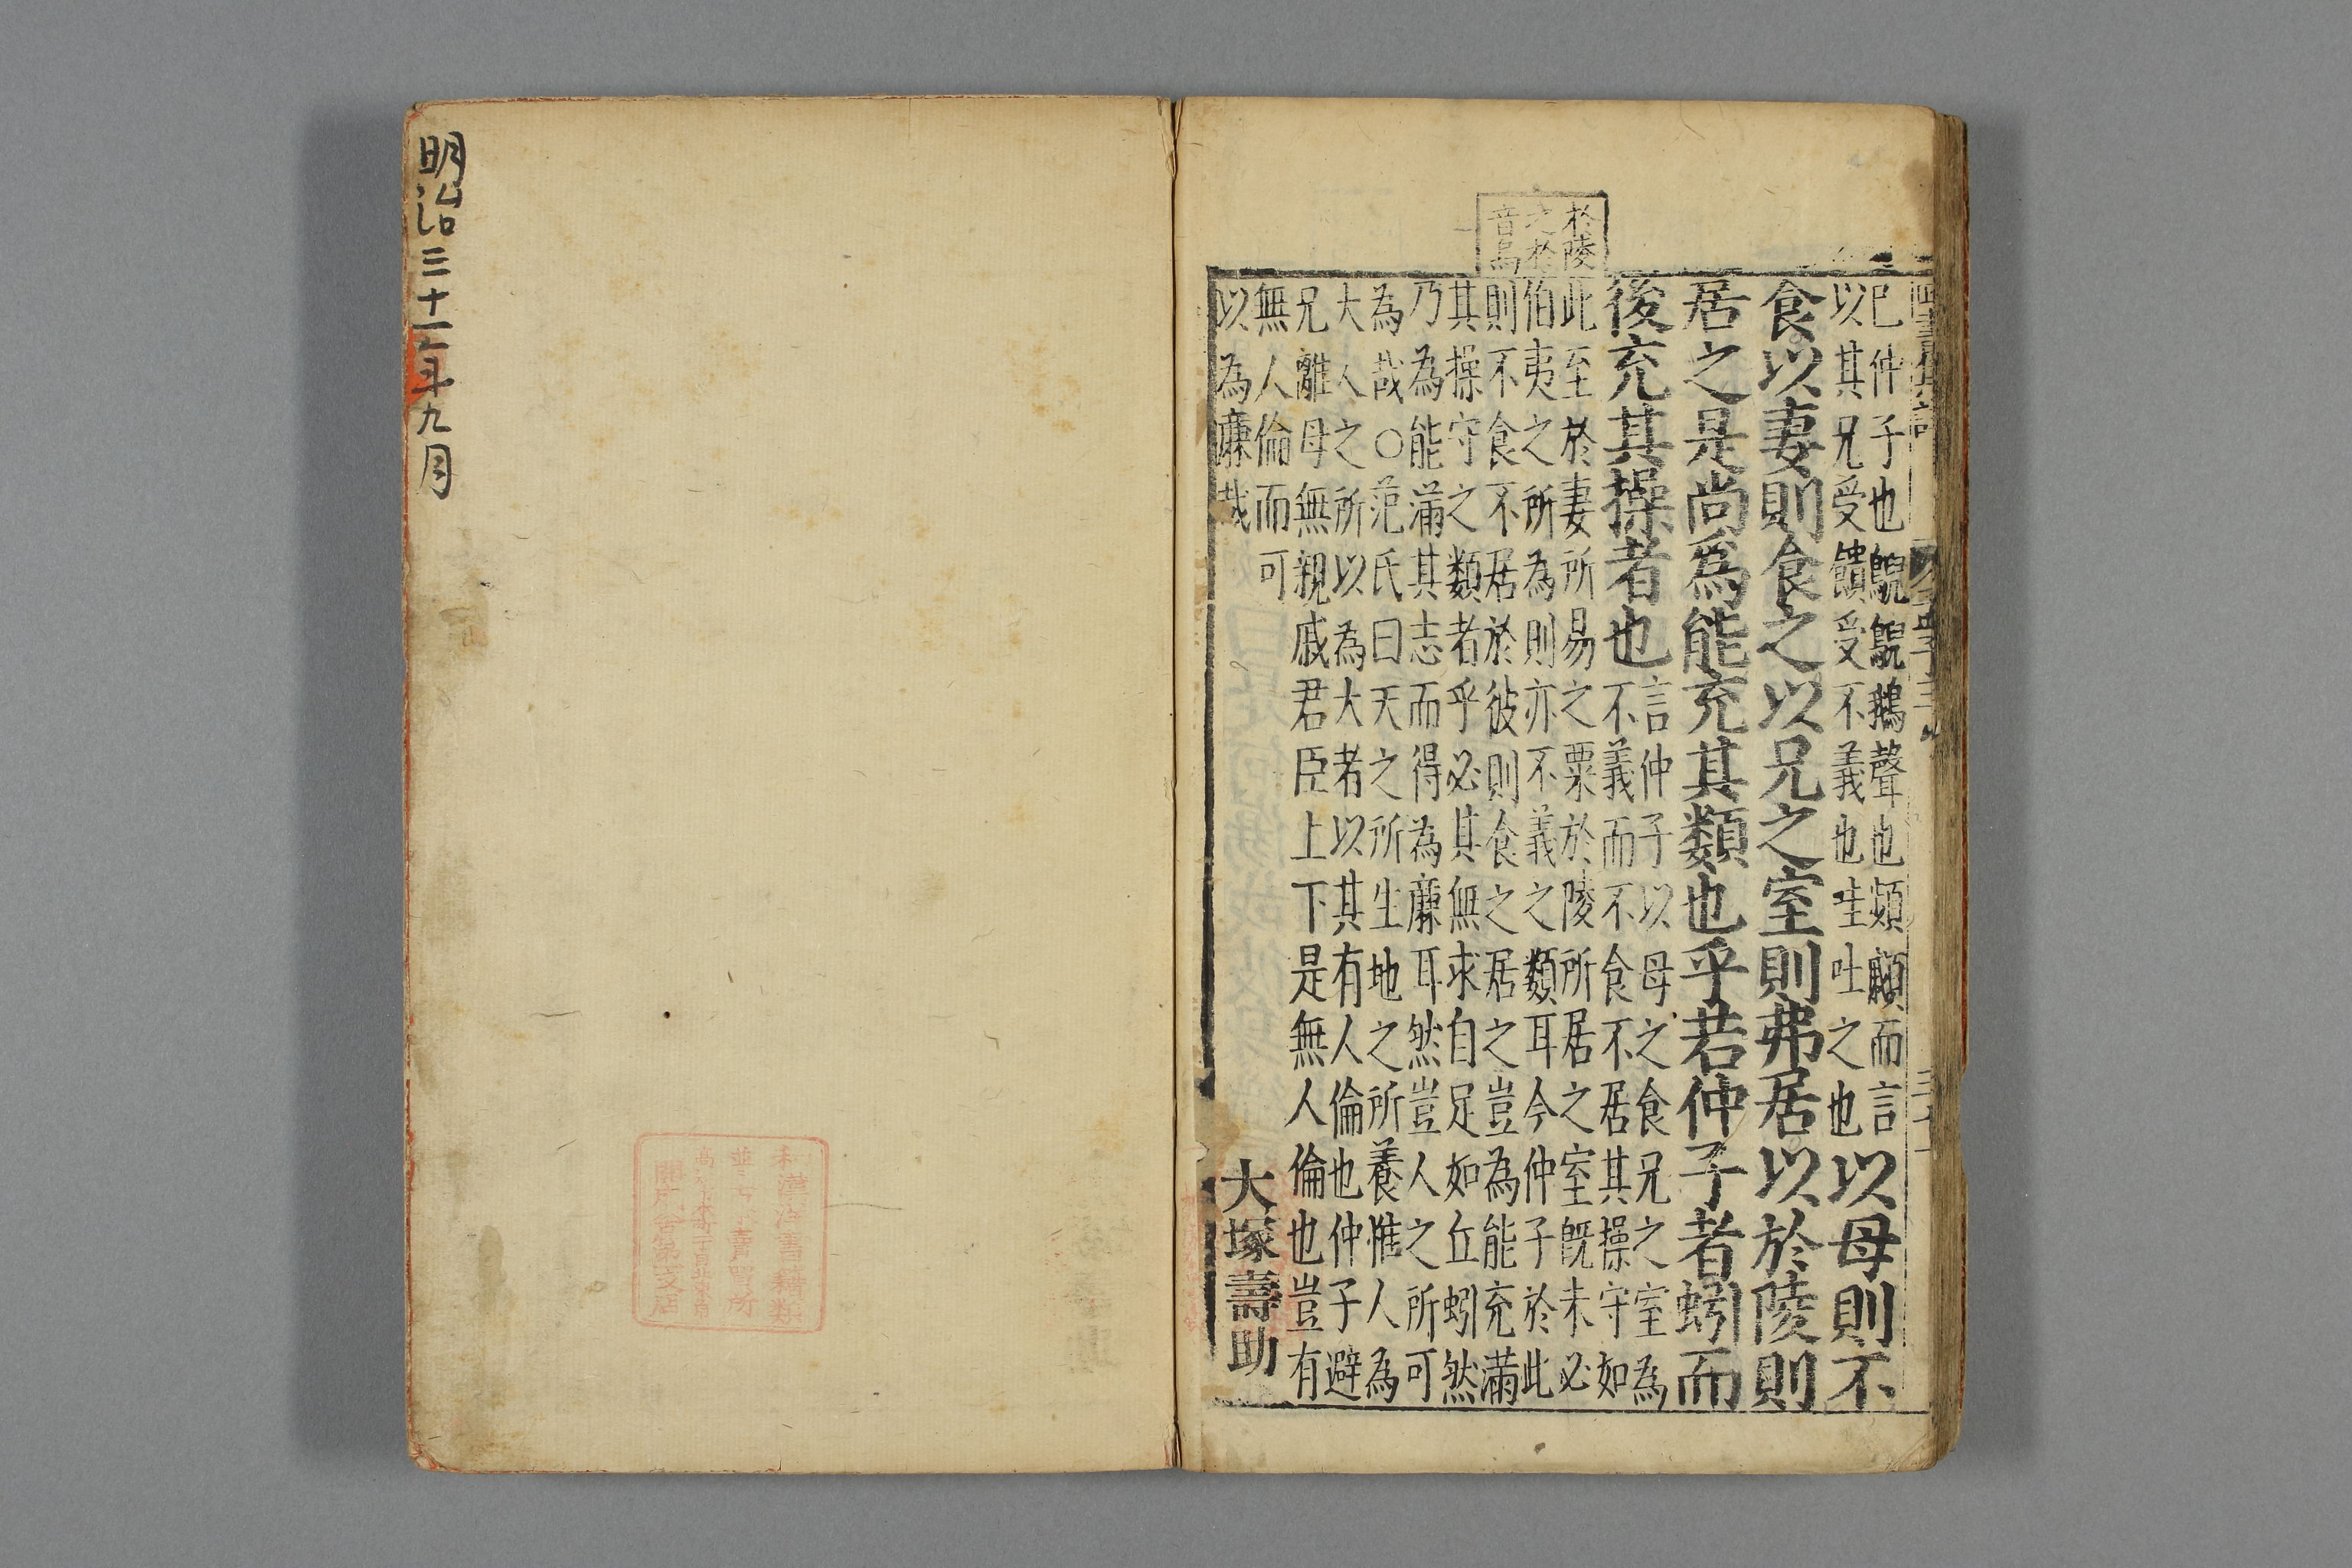 於陵
之於
音烏
巳仲子也鶃鶃鵝聲也頻顣而言
以其兄受饋受不義也哇吐之也
以母則不
食以妻則食之以兄之室則弗居以於陵則
居之是尚爲能充其類也乎若仲子者蚓而
後充其操者也
言仲子以母之食兄之室為
不義而不食不居其操守如
此至於妻所易之粟於陵所居之室旣未必
伯夷之所為則亦不義之類耳今仲子於此
則不食不居於彼則食之居之豈為能充滿
其操守之類者乎必其無求自足如丘蚓然
乃為能滿其志而得為廉耳然豈人之所可
為哉○范氏曰天之所生地之所養惟人為
大人之所以為大者以其有人倫也仲子避
兄離母無親戚君臣上下是無人倫也豈有
無人倫而可
以為廉哉
大塚壽助
明治三十一年九月